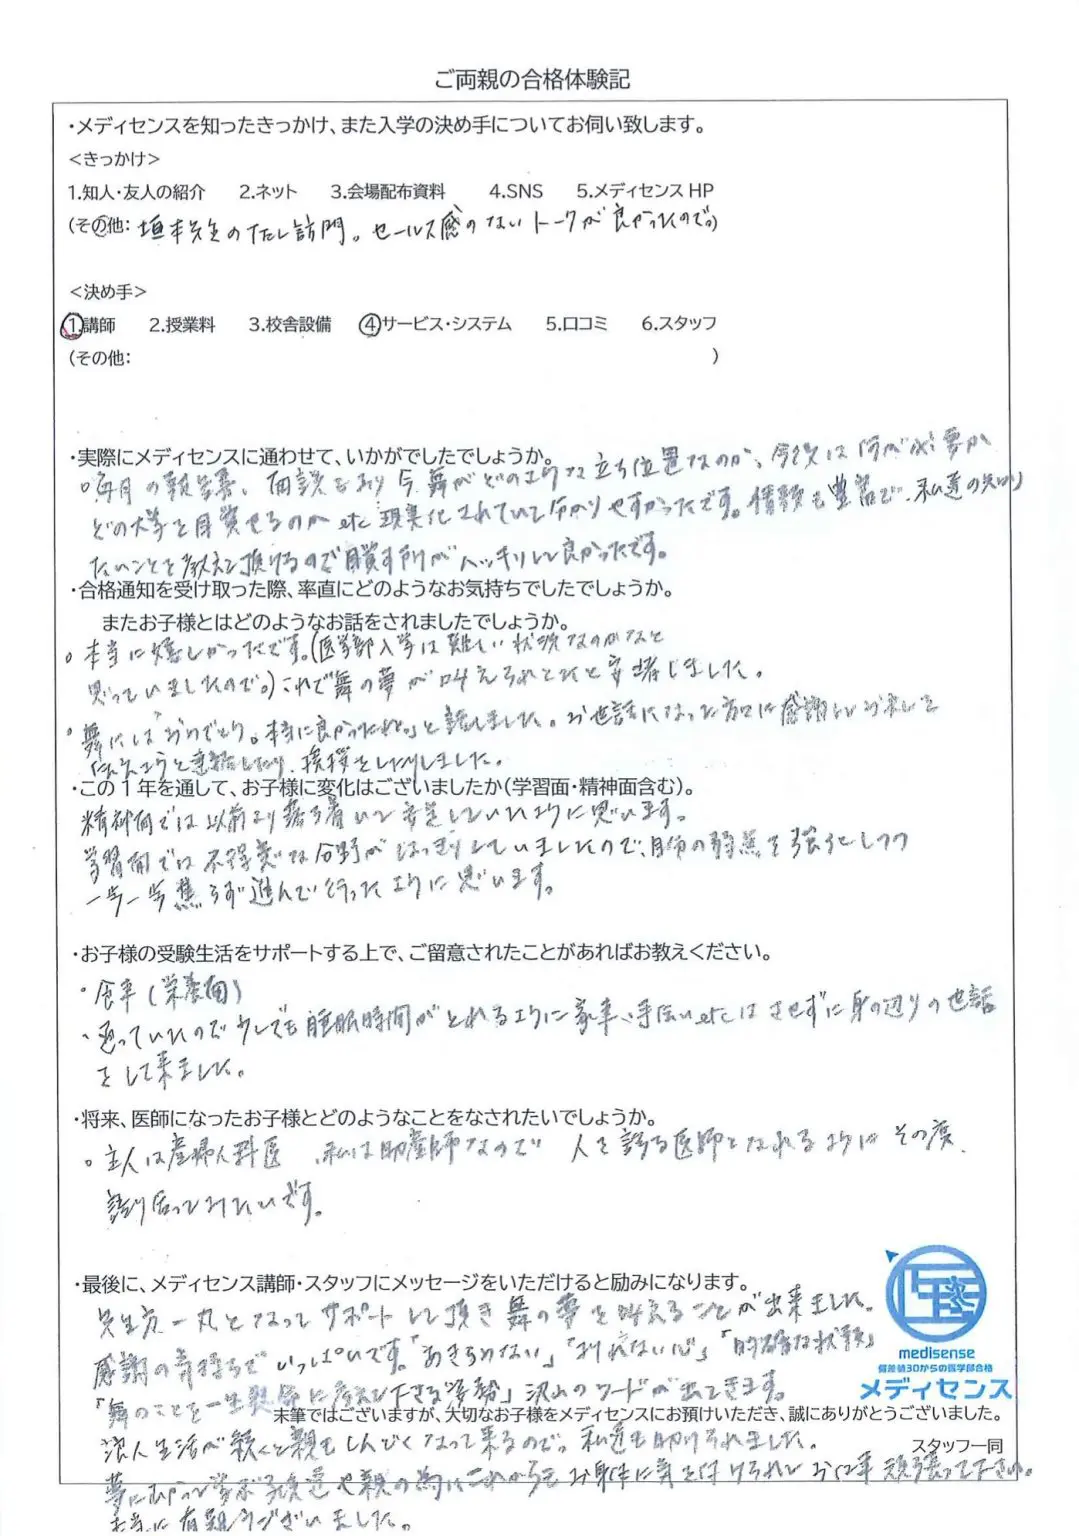 ご両親の合格体験記
・メディセンスを知ったきっかけ、また入学の決め手についてお伺い致します。
<きっかけ>
1.知人・友人の紹介 2.ネット 3.会場配布資料 4.SNS 5.メディセンスHP
(その他: 垣本先生の 訪問。セールス感のないトークが良かったので。)
<決め手>
1.講師 2.授業料 3.校舎設備 4.サービス・システム 5.口コミ 6.スタッフ
(その他: )
・実際にメディセンスに通わせて、いかがでしたでしょうか。
○毎月の報告書、面談もあり今舞がどのような立ち位置なのか、今後は何が必要か
どの大学を目指せるのか etc 現実化されていて分かりやすかったです。情報も豊富で、私達の知り
たいことを教えて頂けるので目指す所がハッキリして良かったです。
・合格通知を受け取った際、率直にどのようなお気持ちでしたでしょうか。
またお子様とはどのようなお話をされましたでしょうか。
○本当に嬉しかったです。(医学部入学は難しい状況なのかなと
思っていましたので。)これで舞の夢が叶えられたと安堵しました。
○舞には「おめでとう。本当に良かったね。」と話しました。お世話になった方々に感謝とお礼を
伝えようと連絡したり、挨拶をしたりしました。
・この1年を通して、お子様に変化はございましたか(学習面・精神面含む)。
精神面では以前より落ち着いて安定していたように思います。
学習面では不得意な分野がはっきりしていましたので、自分の弱点を強化しつつ
一歩一歩焦らず進んで行ったように思います。
・お子様の受験生活をサポートする上で、ご留意されたことがあればお教えください。
○食事(栄養面)
○通っていたので少しでも睡眠時間がとれるように家事、手伝い etcはさせずに身の辺りの世話
をして来ました。
・将来、医師になったお子様とどのようなことをなされたいでしょうか。
○主人は産婦人科医、私は助産師なので 人を診る医師となれるように その
語り合ってみたいです。
・最後に、メディセンス講師・スタッフにメッセージをいただけると励みになります。
先生方一丸となってサポートして頂き舞の夢を叶えることが出来ました。
感謝の気持ちでいっぱいです。「あきらめない」「折れない心」「的確な
「舞のことを一生懸命に考えて下さる 」沢山のワードが出てきます。
medisense
偏差値30からの医学部合格
メディセンス
末筆ではございますが、大切なお子様をメディセンスにお預けいただき、誠にありがとうございました。
浪人生活が続くと親もしんどくなって来るので。私達も助けられました。
スタッフ一同
夢に向かって学ぶ子供達や親の為にこれからもお身体に気を付けられてお仕事頑張って下さい。
本当に有難うございました。